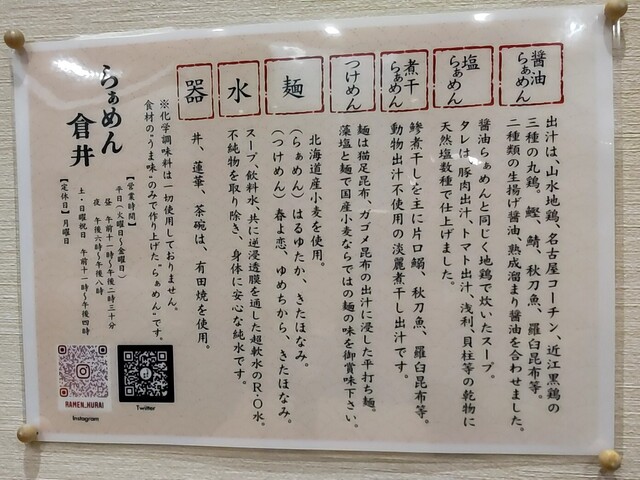 醤油
らぁめん
出汁は、山水地鶏、名古屋コーチン、近江黒鶏の
三種の丸鶏。鰹、鯖、秋刀魚、羅臼昆布等。
二種類の生揚げ醤油、熟成溜まり醤油を合わせました。
塩
らぁめん
醤油らぁめんと同じく地鶏で炊いたスープ。
タレは、豚肉出汁、トマト出汁、浅利、貝柱等の乾物に
天然塩数種で仕上げました。
煮干
らぁめん
鯵煮干しを主に片口鰯、秋刀魚、羅臼昆布等。
動物出汁不使用の淡麗煮干し出汁です。
つけめん
麺は猫足昆布、ガゴメ昆布の出汁に浸した平打ち麺。
藻塩と麺で国産小麦ならではの麺の味を御賞味下さい。
麺
北海道産小麦を使用。
(らぁめん)はるゆたか、きたほなみ。
(つけめん)春よ恋、ゆめちから、きたほなみ。
水
スープ、飲料水、共に逆浸透膜を通した超軟水のR・O水。
不純物を取り除き、身体に安心な純水です。
器
丼、蓮華、茶碗は、有田焼を使用。
※化学調味料は一切使用しておりません。
食材の“うま味”のみで作り上げた“らぁめん”です。
らぁめん
倉井
【営業時間】
平日(火曜日〜金曜日)
昼 午前十一時〜午後二時三十分
夜 午後六時〜午後八時
土・日曜祝日 午前十一時〜午後四時
【定休日】月曜日
RAMEN_KURAI
Instagram
Twitter